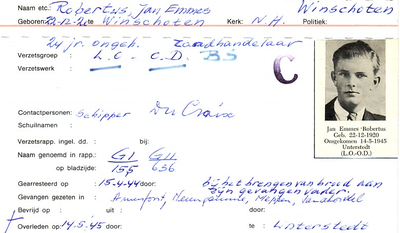 Naam etc.: Robertus, Jan Emmes Winschoten
Geboren 22-12-20 te Winschoten Kerk: N.H. Politiek:
24 jr. ongeh. Zaadhandelaar
Verzetsgroep : L.O. - C.D. BS
Verzetswerk :
C
Contactpersonen: Schipper Du Croix
Schuilnaam :
Verzetsrapp. ingel. dd. : bij:
Naam genoemd in rapp.: GI GII
op bladzijde: 155 636
Gearresteerd op : 15-4-44 door: bij het brengen van brood aan zijn gevangen vader.
Gevangen gezeten in : Amersfoort, Meppen,
Bevrijd op : uit : door:
Overleden op : 14.5.45 door: te Unterstedt
Jan Emmes Robertus
Geb. 22-12-1920
Omgekomen 14-5-1945
Unterstedt
(L.O.-O.D.)